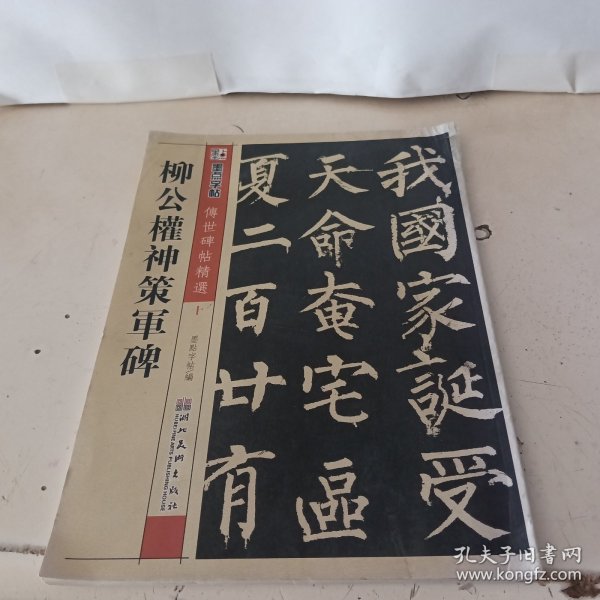 柳公權神策軍碑
墨点字帖
傳世碑帖精選
十
墨點字帖/編
湖北美術出版社
HUBEI FINE ARTS PUBLISHING HOUSE
我國家誕受
天命奄宅區
夏二百廿有
孔夫子旧书网
www.kongfz.com